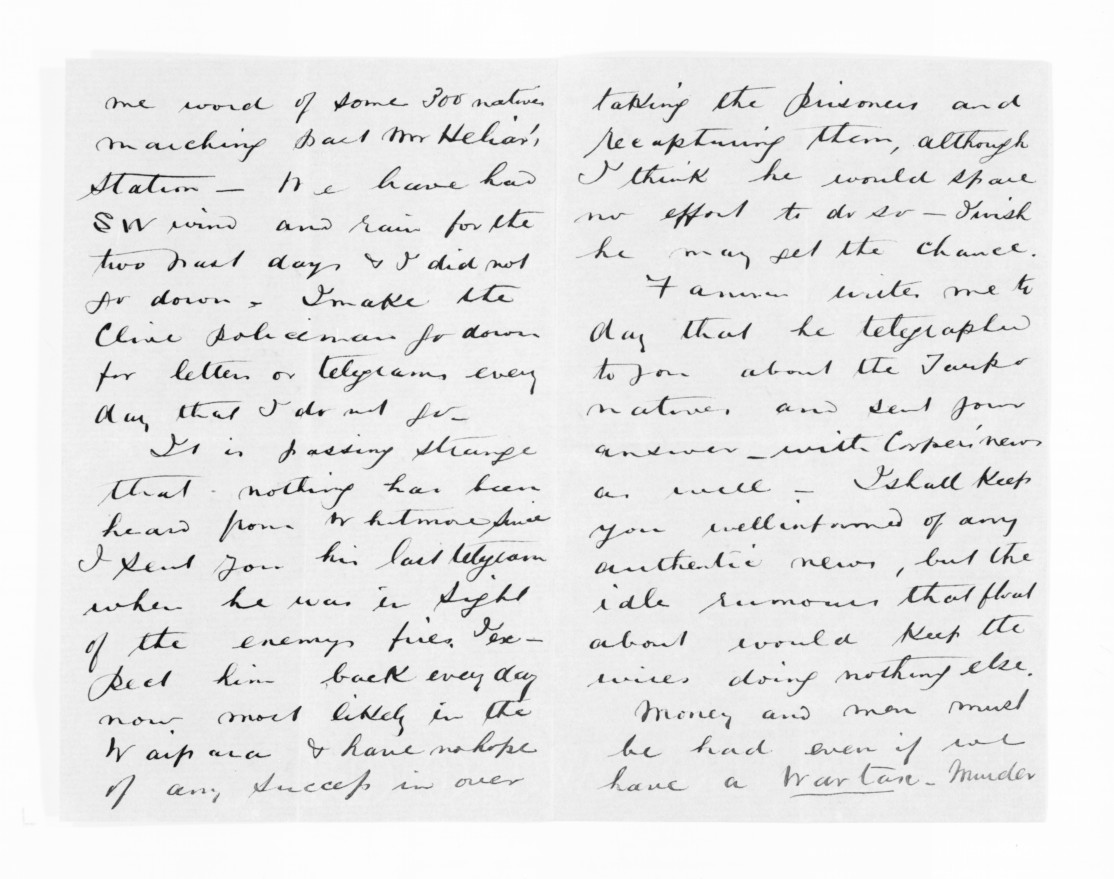 me word of some 300 natives
marching past Mr Helier's
Station — We have had
SW wind and rain for the
two past days & I did not
go down. I make the
Clive policeman go down
for letters or telegrams every
day that I do not go —
It is passing strange
that nothing has been
heard from Whitmore since
I sent you his last telegram
when he was in sight
of the enemys fires. I ex-
pect him back every day
now most likely in the
Waipara & have no hope
of any success in over
taking the prisoners and
recapturing them, although
I think he would spare
no effort to do so — I wish
he may get the chance.
writes me to
day that he telegraphed
to you about the Taupo
natives and sent your
answer — with news
as well — I shall keep
you well informed of any
authentic news, but the
idle rumours that float
about would keep the
wires doing nothing else.
Money and men must
be had even if we
have a War tax — Murder